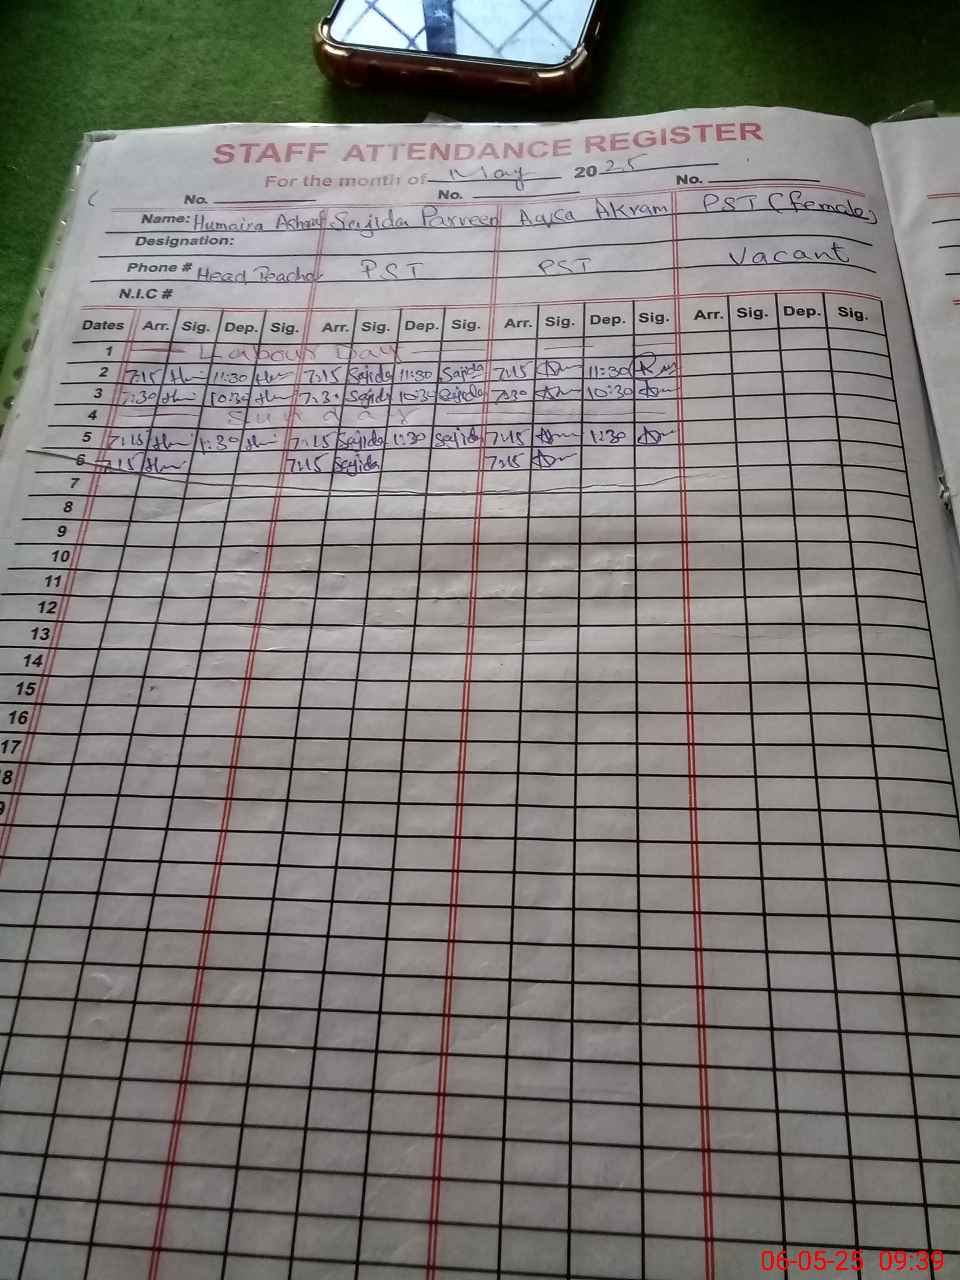 STAFF ATTENDANCE REGISTER
For the month of May 2025
No. No. No.
Name: Humaira Ashraf Sajida Parveen Aqsa Akram PST (Female)
Designation:
Phone # Head Teacher PST PST Vacant
N.I.C #
Dates Arr. Sig. Dep. Sig. Arr. Sig. Dep. Sig. Arr. Sig. Dep. Sig. Arr. Sig. Dep. Sig.
1 Labour Day
2 7:15 11:30 7:15 Sajida 11:30 Sajida 7:15 11:30
3 7:30 10:30 7:30 Sajida 10:30 Sajida 7:30 10:30
4 Sunday
5 7:15 1:30 7:15 Sajida 1:30 Sajida 7:15 1:30
6 7:15 7:15 Sajida 7:15
7
8
9
10
11
12
13
14
15
16
17
8
9
06-05-25 09:39